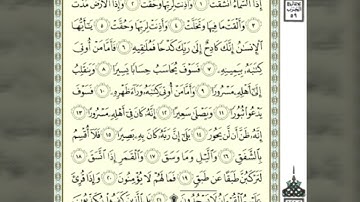 إِذَا ٱلسَّمَآءُ ٱنشَقَّتۡ ١ وَأَذِنَتۡ لِرَبِّهَا وَحُقَّتۡ ٢ وَإِذَا ٱلۡأَرۡضُ مُدَّتۡ
٣ وَأَلۡقَتۡ مَا فِيهَا وَتَخَلَّتۡ ٤ وَأَذِنَتۡ لِرَبِّهَا وَحُقَّتۡ ٥ يَٰٓأَيُّهَا
ٱلۡإِنسَٰنُ إِنَّكَ كَادِحٌ إِلَىٰ رَبِّكَ كَدۡحٗا فَمُلَٰقِيهِ ٦ فَأَمَّا مَنۡ أُوتِيَ
كِتَٰبَهُۥ بِيَمِينِهِۦ ٧ فَسَوۡفَ يُحَاسَبُ حِسَابٗا يَسِيرٗا ٨ وَيَنقَلِبُ
إِلَىٰٓ أَهۡلِهِۦ مَسۡرُورٗا ٩ وَأَمَّا مَنۡ أُوتِيَ كِتَٰبَهُۥ وَرَآءَ ظَهۡرِهِۦ ١٠ فَسَوۡفَ
يَدۡعُواْ ثُبُورٗا ١١ وَيَصۡلَىٰ سَعِيرًا ١٢ إِنَّهُۥ كَانَ فِيٓ أَهۡلِهِۦ مَسۡرُورًا ١٣
إِنَّهُۥ ظَنَّ أَن لَّن يَحُورَ ١٤ بَلَىٰٓۚ إِنَّ رَبَّهُۥ كَانَ بِهِۦ بَصِيرٗا ١٥ فَلَآ أُقۡسِمُ
بِٱلشَّفَقِ ١٦ وَٱلَّيۡلِ وَمَا وَسَقَ ١٧ وَٱلۡقَمَرِ إِذَا ٱتَّسَقَ ١٨
لَتَرۡكَبُنَّ طَبَقًا عَن طَبَقٖ ١٩ فَمَا لَهُمۡ لَا يُؤۡمِنُونَ ٢٠ وَإِذَا قُرِئَ